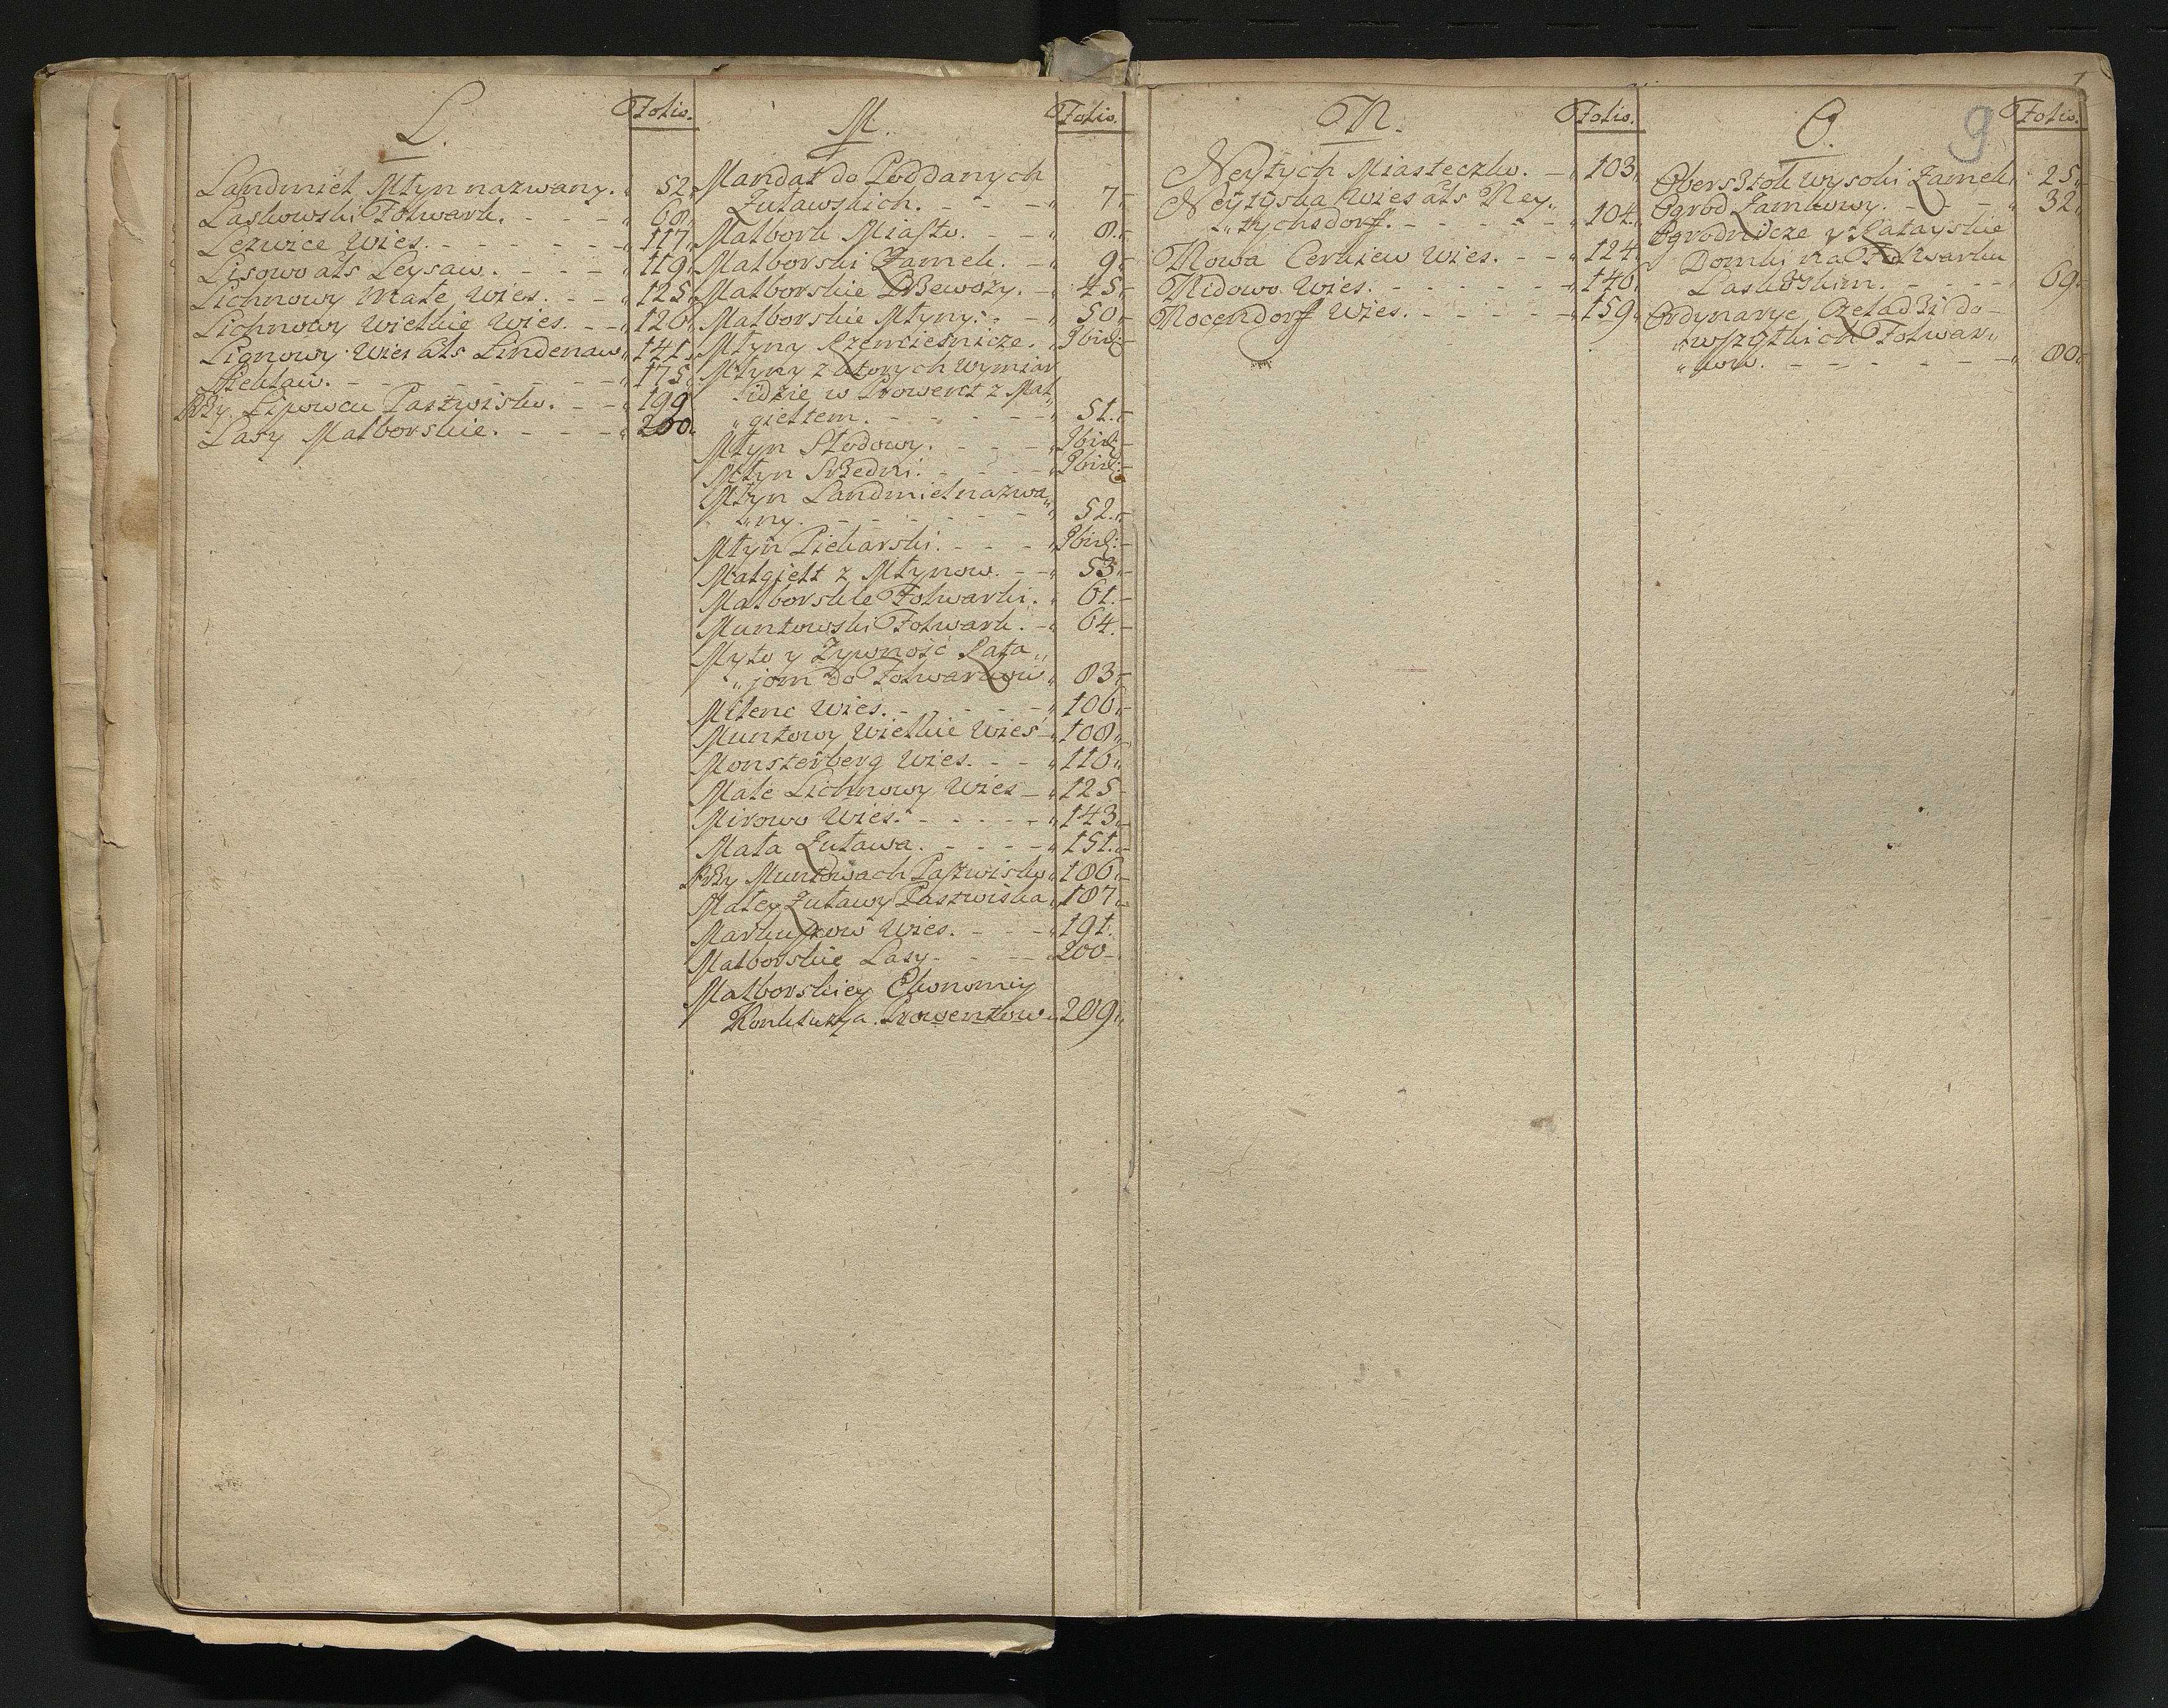 L. Folio.
Landmiel Młyn nazwany. 52
Laskowski Folwark. 68
Lezwice Wies. 117
Lisowo als Leysaw. 119
Lichnowy Małe Wies. 125
Lichnowy Wielkie Wies. 126
Lignowy Wies als Lindenaw 141
175
Przy Lipowcu Pastwisko. 199
Lasy Malborskie. 200
M. Folio.
Mandat do Poddanych
Zuławskich. 7
Malbork Miasto. 8
Malborski Zamek. 9
Malborskie Przewozy. 45
Malborskie Młyny. 50
Młyny Rzemiesnicze. Ibid:
Młyny z ktorych Wymiar
Jdzie w Prowent z Mal„
„gieltem. 51.
Młyn Słodowy. Ibid:
Młyn Srzedni. Ibid:
Młyn Landmiel nazwa„
„ny. 52.
Młyn Piekarski. Ibid:
Malgielt z Młynow. 53
Malborskie Folwarki. 61.
Muntowski Folwark. 64.
Myto y Zywność Rata„
„jom do Folwarkow 83
Milenc Wies. 106
Muntowy Wielkie Wieś 108
Monsterberg Wies. 116
Małe Lichnowy Wies 125
Mirowo Wies. 143
Mała Zuława. 151.
Przy Muntowach Pastwisko 186
Małey Zuławy Pastwiska 187
Markuszow Wies. 191.
Malborskie Lasy. 200
Malborskiey Ekonomiy
Konkluzya Prowentow 209
N. Folio.
Neytych Miasteczko. 103
Neytyska Wies als Ney„
„tychsdorff. 104.
Nowa Cerkiew Wies. 124
Nidowo Wies. 140
Nocendorff Wies. 159
O. 9 Folio.
Obersztok wysoki Zamek 25
Ogrod Zamkowy. 32
Ogrodnicze y Ratayskie
Domki na Folwarku
Laskowskim. 69
Ordynarye Czeladzi do
„wszytkich Folwar„
„kow. 80